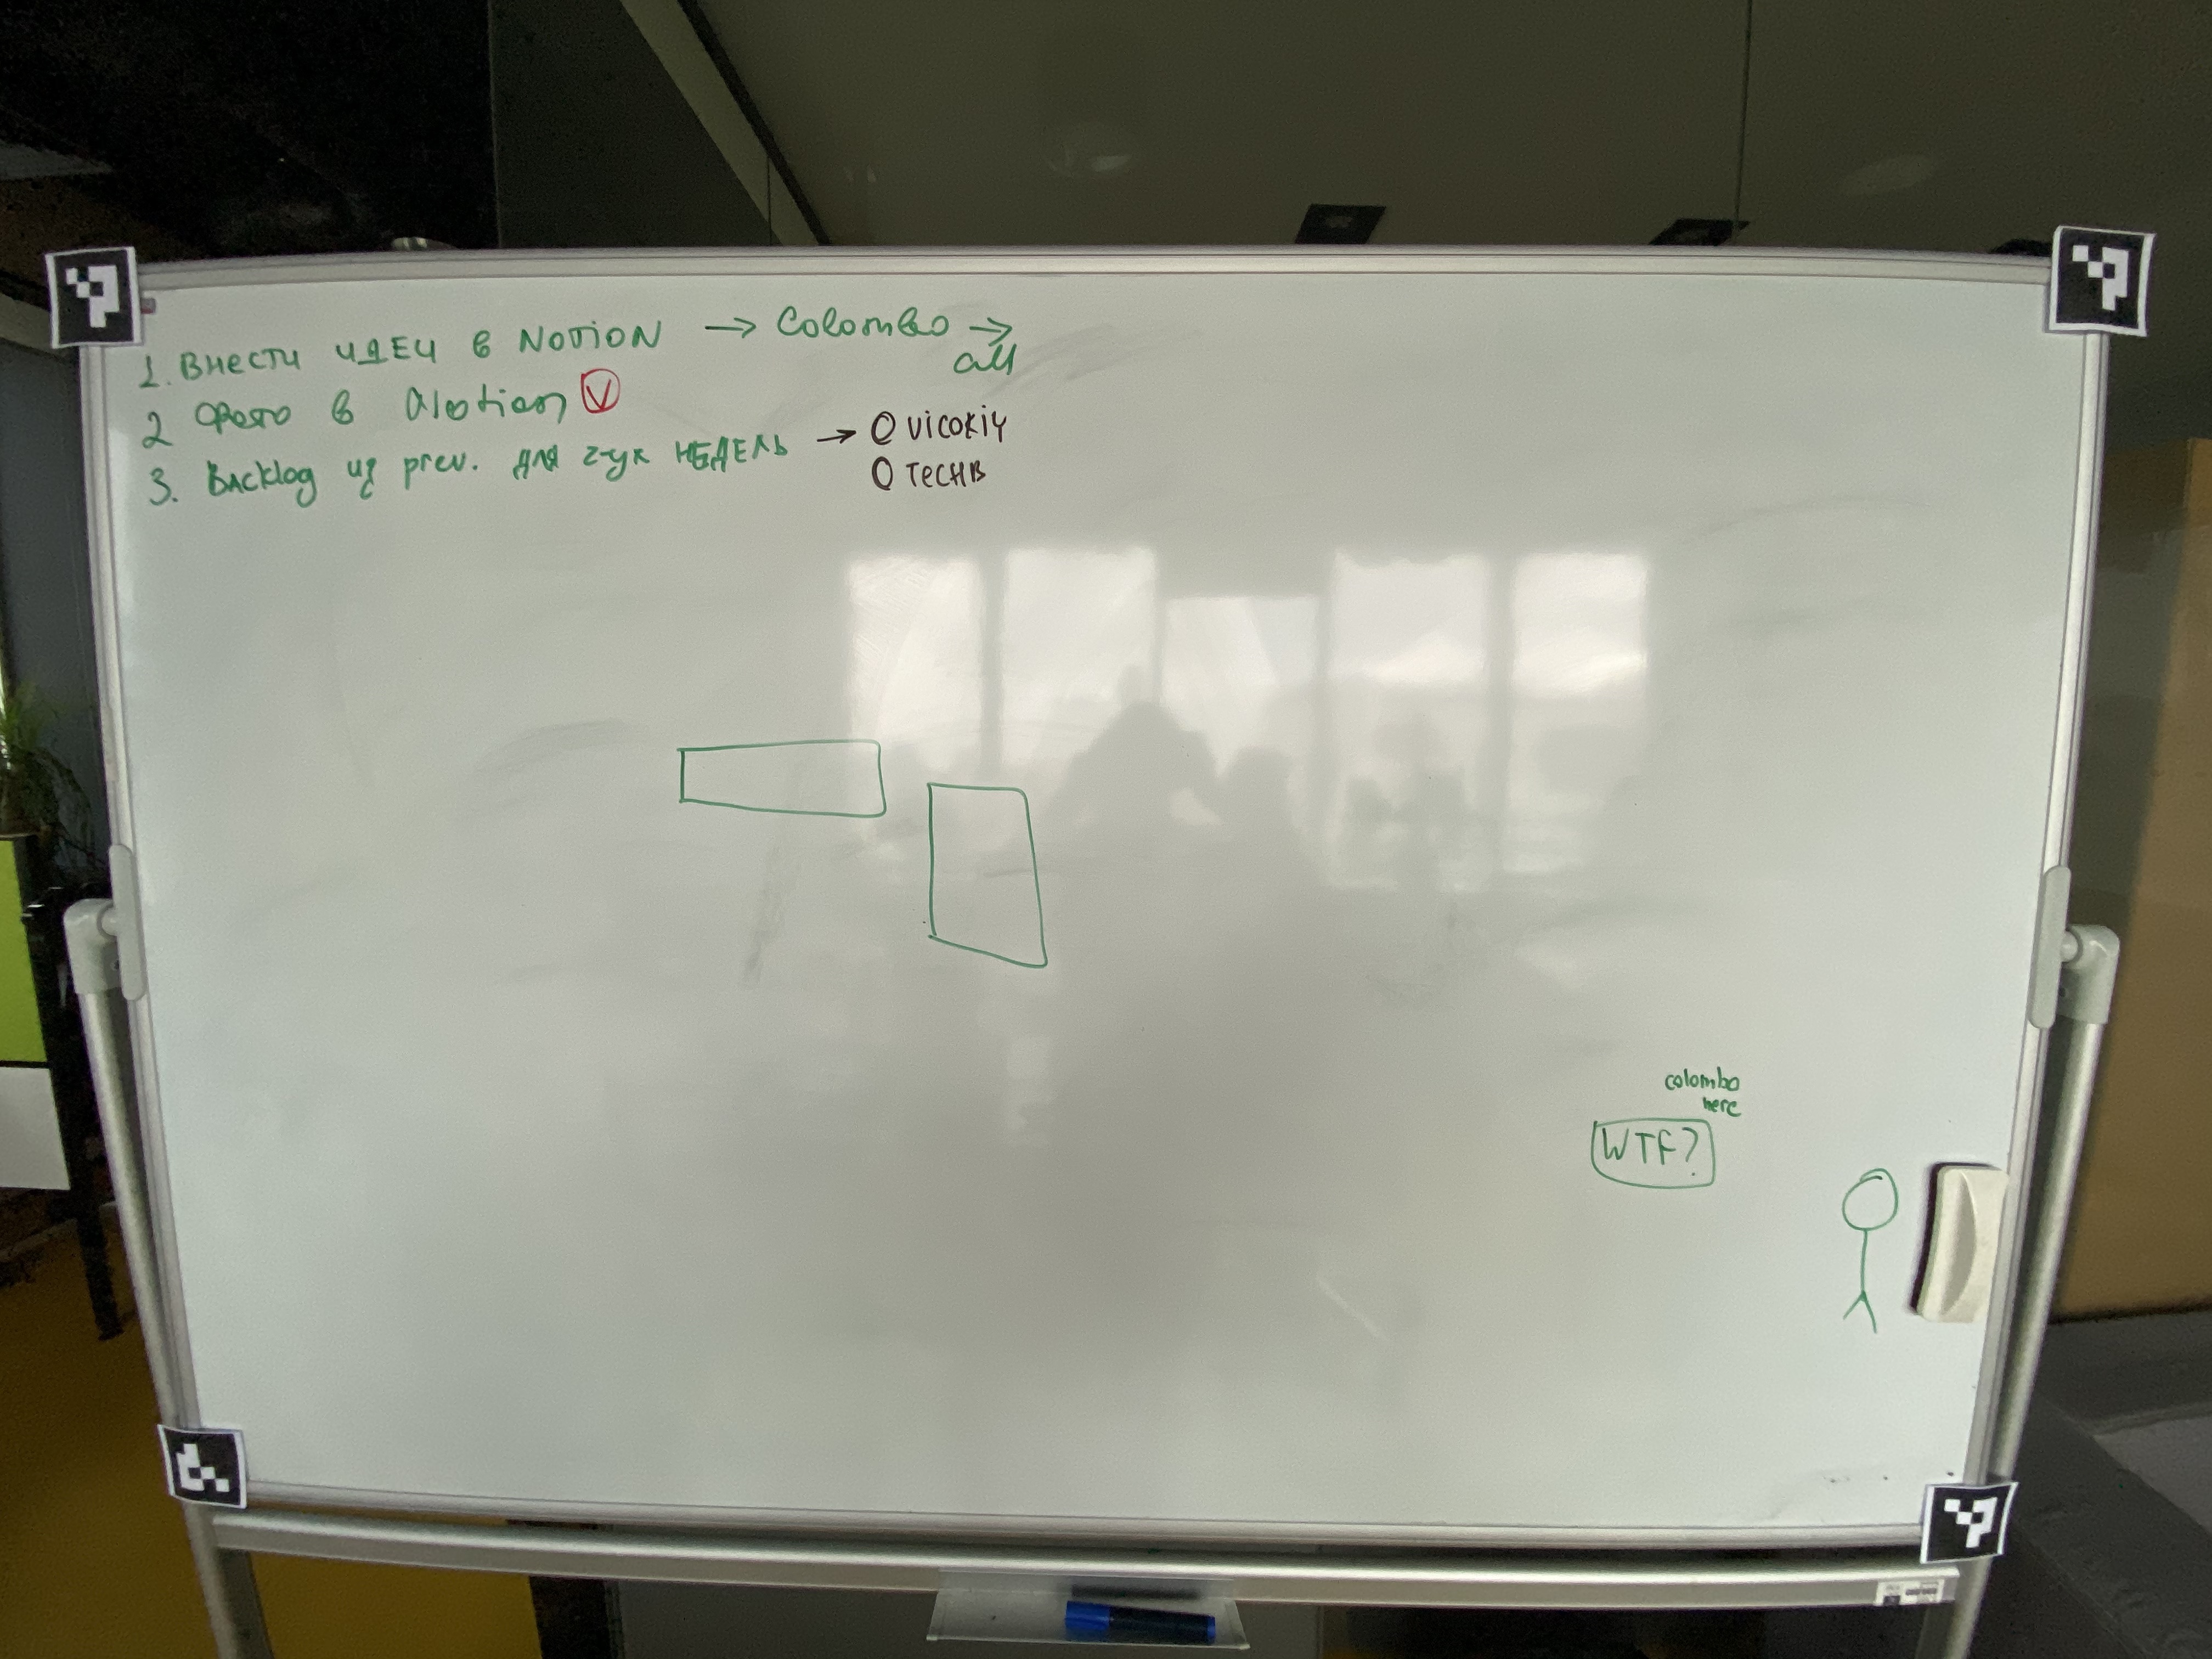 1. Внести идеи в NOTION → Colombo →
all
2 Фото в Notion V
3. Backlog из prev. для 2-ух НЕДЕЛЬ → O VICOKIY
O TECHB
colombo
here
WTF?